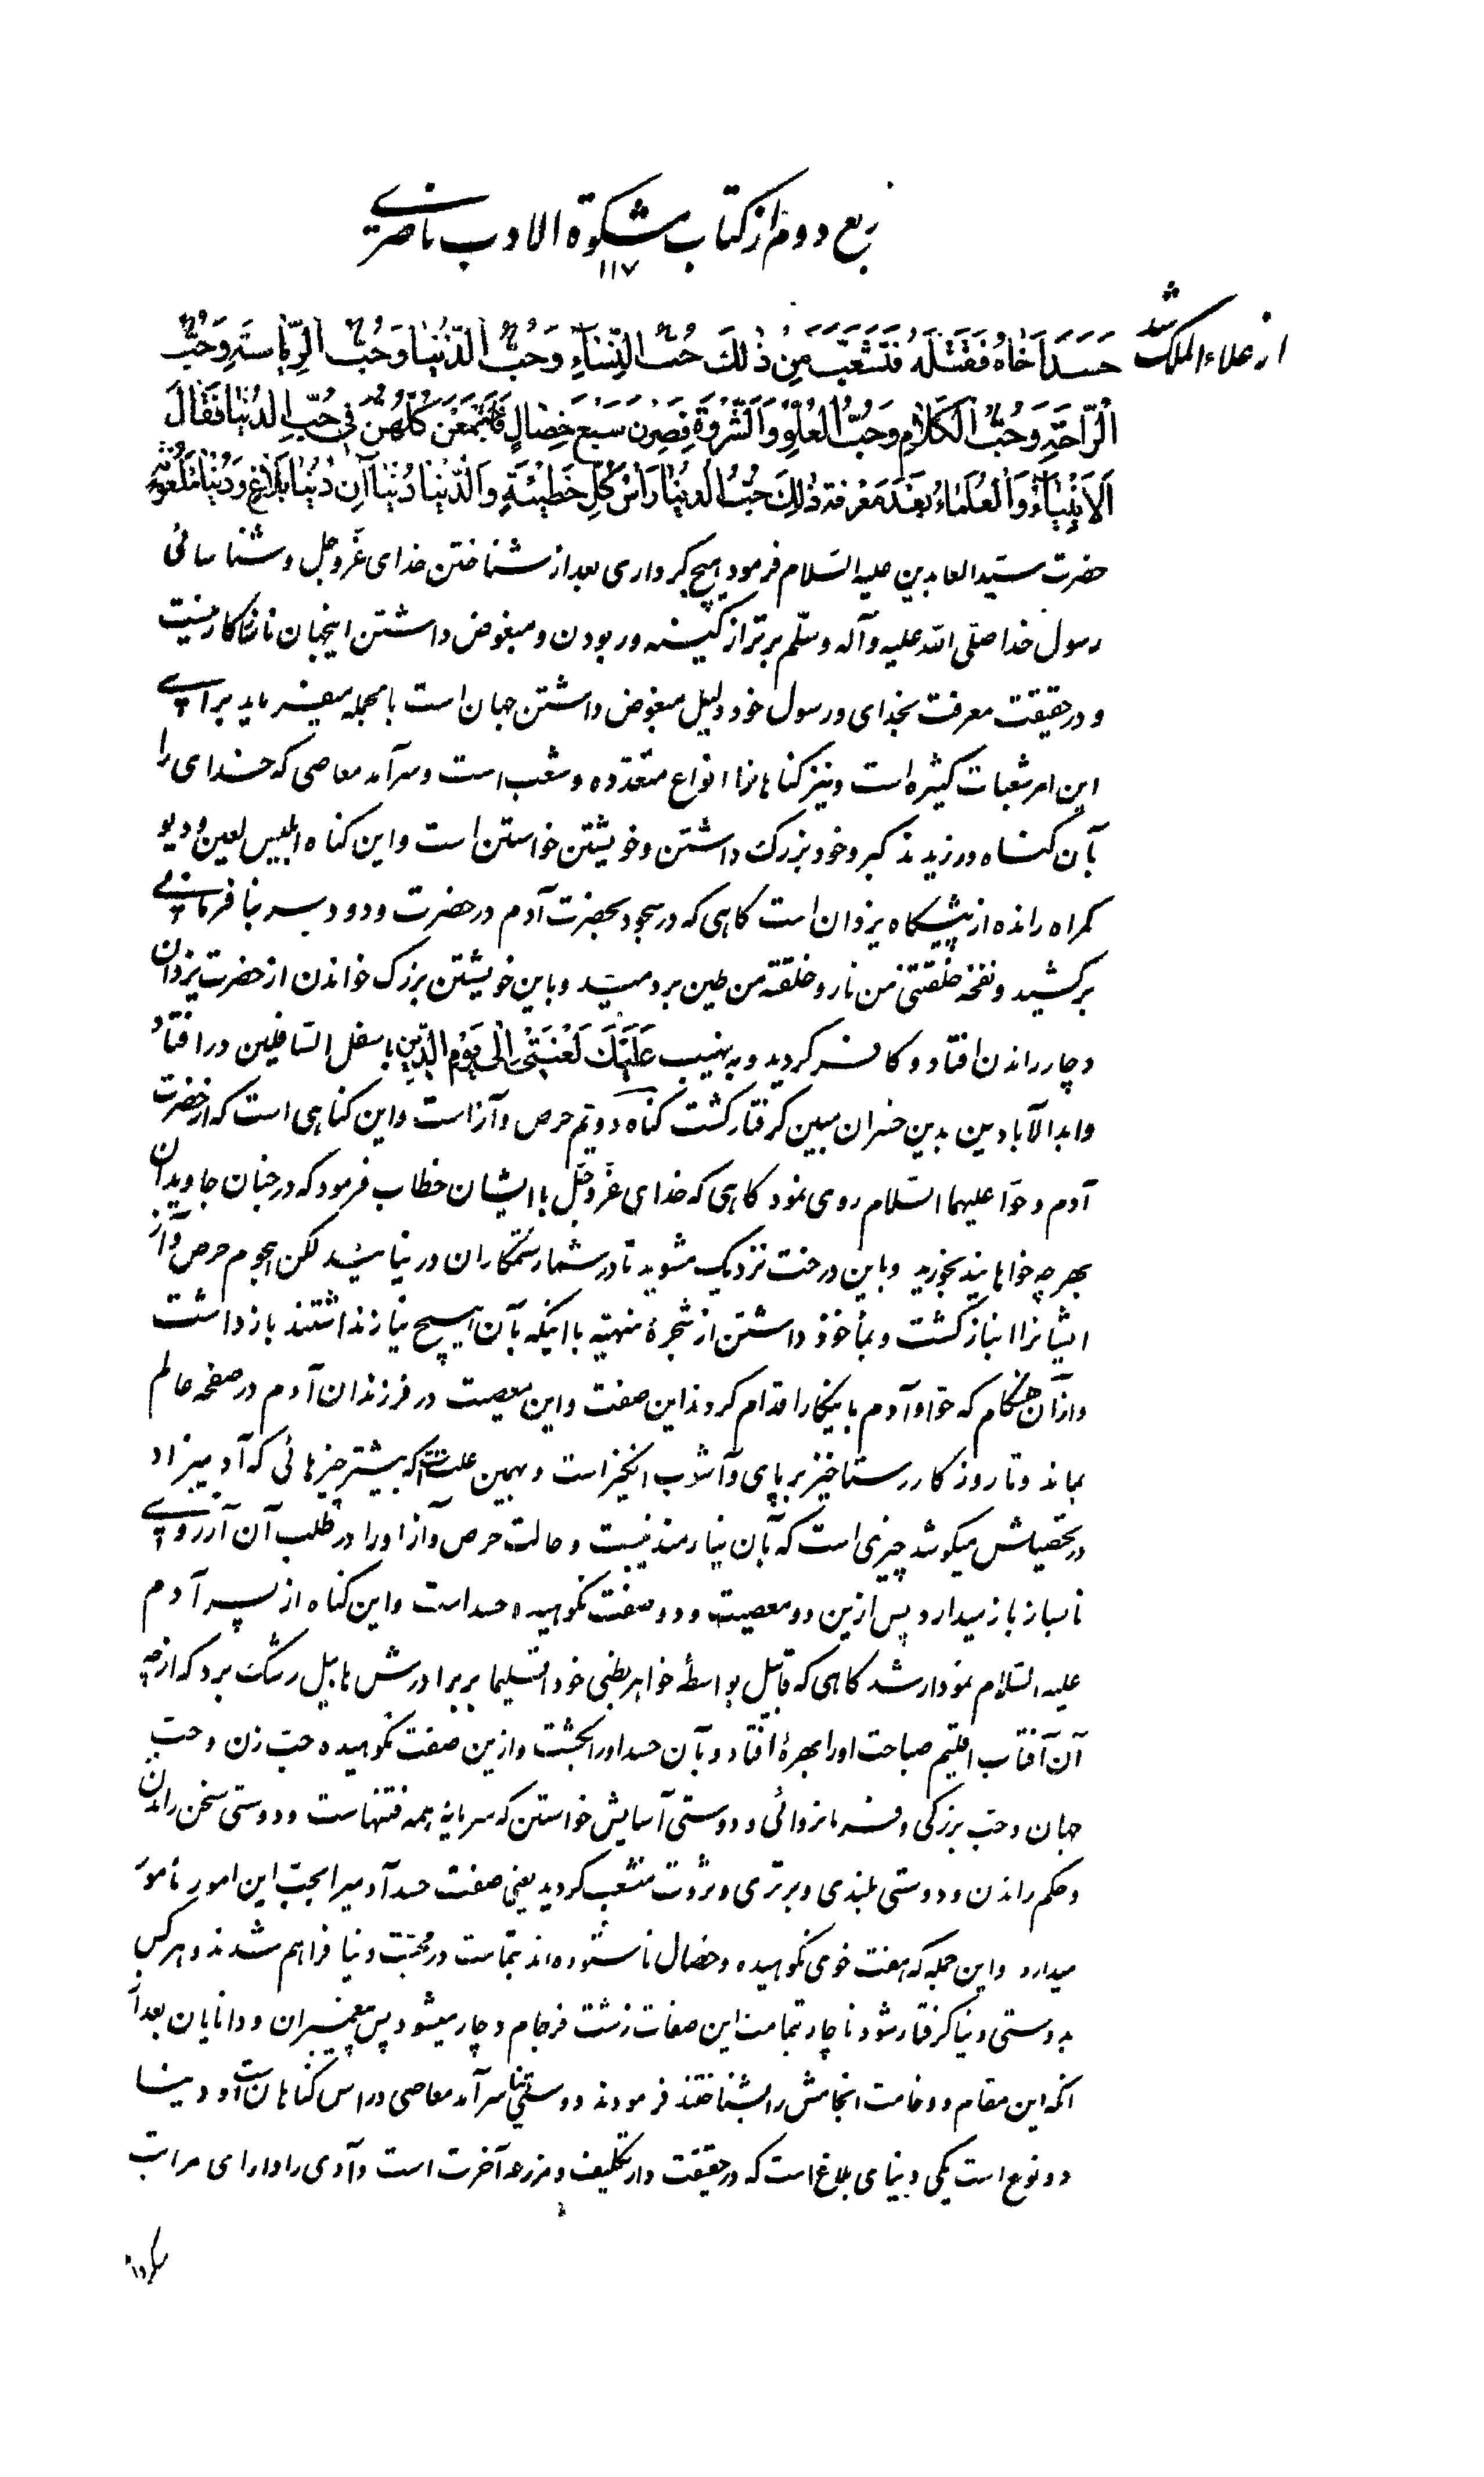 ربع دوم از کتاب مشکوة الادب ناصری
۱۱۷
از علاء الملک شد
حَسَدَ اَخَاهُ فَقَتَلَهُ فَتَشَعَّبَ مِنْ ذٰلِكَ حُبُّ النِّسَاءِ وَحُبُّ الدُّنْيَا وَحُبُّ الرِّيَاسَةِ وَحُبُّ
الرَّاحَةِ وَحُبُّ الْكَلَامِ وَحُبُّ الْعُلُوِّ وَالثَّرْوَةِ فَصِرْنَ سَبْعَ خِصَالٍ فَاجْتَمَعْنَ كُلُّهُنَّ فِي حُبِّ الدُّنْيَا فَقَالَ
الْاَنْبِيَاءُ وَالْعُلَمَاءُ بَعْدَ مَعْرِفَةِ ذٰلِكَ حُبُّ الدُّنْيَا رَأْسُ كُلِّ خَطِيْئَةٍ وَالدُّنْيَا دُنْيَاآنِ دُنْيَا بَلَاغٍ وَدُنْيَا مَلْعُونَةٍ
حضرت سیّد العابدین علیه السّلام فرمود هیچ کرداری بعد از شناختن خدای عزّوجل و شناسائی
رسول خدا صلّی الله علیه وآله وسلّم برتر از کینه ور بودن و مبغوض داشتن اینجهان نیست
و در حقیقت معرفت بخدای و رسول خود دلیل مبغوض داشتن جهان است بالجمله میفرماید برای
این امر شعبات کثیره است و نیز کناهانرا انواع متعدّده و شعب است و سرآمد معاصی که خدای را
بآن کناه ورزیدند کبر و خود بزرک داشتن و خویشتن خواستن است و این کناه ابلیس لعین و دیو
کمراه رانده از پیشکاه یزدان است کاهی که در سجود بحضرت آدم در حضرت ودود سر بنافرمانی
برکشید و نفخه خلقتنی من نار و خلقته من طین بردمید و باین خویشتن بزرک خواندن از حضرت یزدان
دچار راندن افتاد و کافر کردید و به نهیب عَلَيْكَ لَعْنَتِي اِلٰى يَوْمِ الدِّينِ باسفل السّافلین درافتاد
و ابدالآبادین بدین خسران مبین کرفتار کشت کناه دویّم حرص و آز است و این کناهی است که از حضرت
آدم و حوّا علیهما السّلام روی نمود کاهی که خدای عزّوجلّ با ایشان خطاب فرمود که در جنان جاویدان
بهر چه خواهانید بخورید و باین درخت نزدیک مشوید تا در شمار ستمکاران در نیائید لکن هجوم حرص و آز
ایشانرا انباز کشت و بمأخوذ داشتن از شجرۀ منهیّه با اینکه بآن هیچ نیاز نداشتند بازداشت
و از آن هنکام که حوّا و آدم باینکار اقدام کردند این صفت و این معصیت در فرزندان آدم در صفحه عالم
بماند و تا روزکار رستاخیز برپای و آشوب انکیز است و بهمین علت است که بیشتر چیزهائی که آدمیزاد
در تحصیلش میکوشد چیزی است که بآن نیازمند نیست و حالت حرص و آز او را در طلب آن آرزوی
ناساز باز میدارد پس از این دو معصیت و دو صفت نکوهیده حسد است و این کناه از پسر آدم
علیه السّلام نمودار شد کاهی که قابیل بواسطۀ خواهر بطنی خود اقلیما بر برادرش هابیل رشک برد که از چه
آن آفتاب اقلیم صباحت او را بهره افتاد و بآن حسد او را بکشت و از این صفت نکوهیده حبّ زن و حبّ
جهان و حبّ بزرکی و فرمانروائی و دوستی آسایش خواستن که سرمایۀ همه فتنهاست و دوستی سخن راندن
و حکم راندن و دوستی بلندی و برتری و ثروت منشعب کردید یعنی صفت حسد آدمیرا بحبّ این امور مأمور
میدارد و این جمله که هفت خوی نکوهیده و خصال ناستوده اند بتمامت در محبّت دنیا فراهم شدند و هر کس
بدوستی دنیا کرفتار شود ناچار بتمامت این صفات زشت فرجام دچار میشود پس پیغمبران و دانایان بعد از
آنکه این مقام و وخامت انجامش را بشناختند فرمودند دوستی دنیا سرآمد معاصی و راس کناهان است و دنیا
دو نوع است یکی دنیای بلاغ است که در حقیقت دار تکلیف و مزرعه آخرت است و آدمی را دارای مراتب